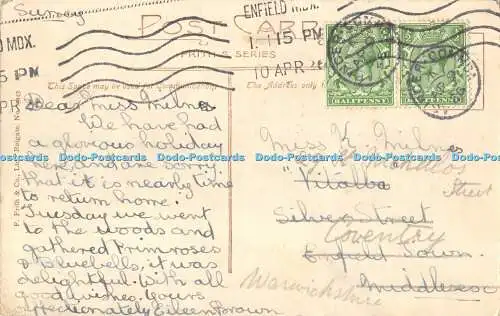 Sunday
ENFIELD MDX.
POST CARD
MDX.
1.15 PM
FRITH'S SERIES
15 PM
10 APR 2
APR
HALFPENNY
HALFPENNY
This Space may be used for
The Address only to
F. Frith & Co., Ltd., Reigate.
Dear Miss Milne
We have had
a glorious holiday
here, and are sorry
that it is nearly time
to return home.
Tuesday we went
to the woods and
gathered Primroses
& Bluebells, it was
delightful. With all
good wishes. Yours
affectionately Eileen Brown
Miss K. Milnes
"Vitalba"
Street
Silver Street
Coventry
Enfield Town
Middlesex
Warwickshire
Dodo-Postcards Dodo-Postcards Dodo-Postcards Dodo-Postcards Dodo-Postcards